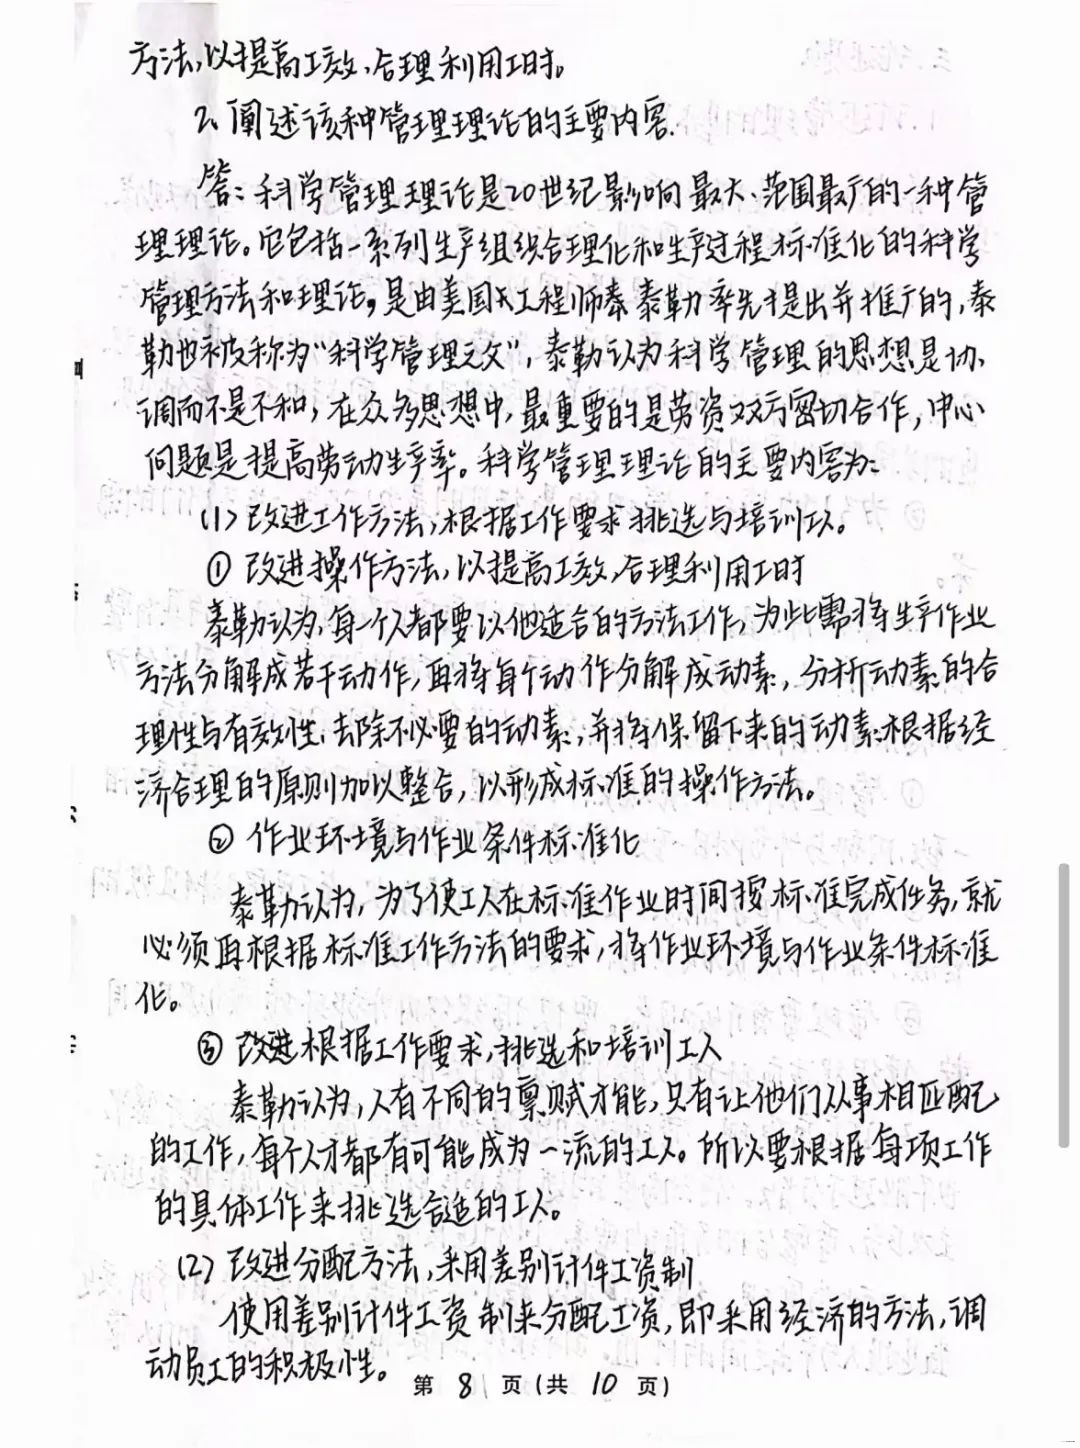 方法,以提高工效、合理利用工时。
2、阐述该种管理理论的主要内容.
答:科学管理理论是20世纪影响最大、范围最广的一种管
理理论。它包括一系列生产组织合理化和生产过程标准化的科学
管理方法和理论,是由美国工程师泰勒率先提出并推广的,泰
勒也被称为“科学管理之父”,泰勒认为科学管理的思想是协
调而不是不和,在众多思想中,最重要的是劳资双方密切合作,中心
问题是提高劳动生产率。科学管理理论的主要内容为:
(1)改进工作方法,根据工作要求挑选与培训工人。
① 改进操作方法,以提高工效,合理利用工时
泰勒认为,每一个人都要以他适合的方法工作,为此需将生产作业
方法分解成若干动作,再将每个动作分解成动素,分析动素的合
理性与有效性,去除不必要的动素,并将保留下来的动素根据经
济合理的原则加以整合,以形成标准的操作方法。
② 作业环境与作业条件标准化
泰勒认为,为了使工人在标准作业时间按标准完成任务,就
必须再根据标准工作方法的要求,将作业环境与作业条件标准
化。
③ 改进根据工作要求,挑选和培训工人
泰勒认为,人有不同的禀赋才能,只有让他们从事相匹配
的工作,每个人才都有可能成为一流的工人。所以要根据每项工作
的具体工作来挑选合适的工人。
(2)改进分配方法,采用差别计件工资制
使用差别计件工资制来分配工资,即采用经济的方法,调
动员工的积极性。
第 8 页(共 10 页)